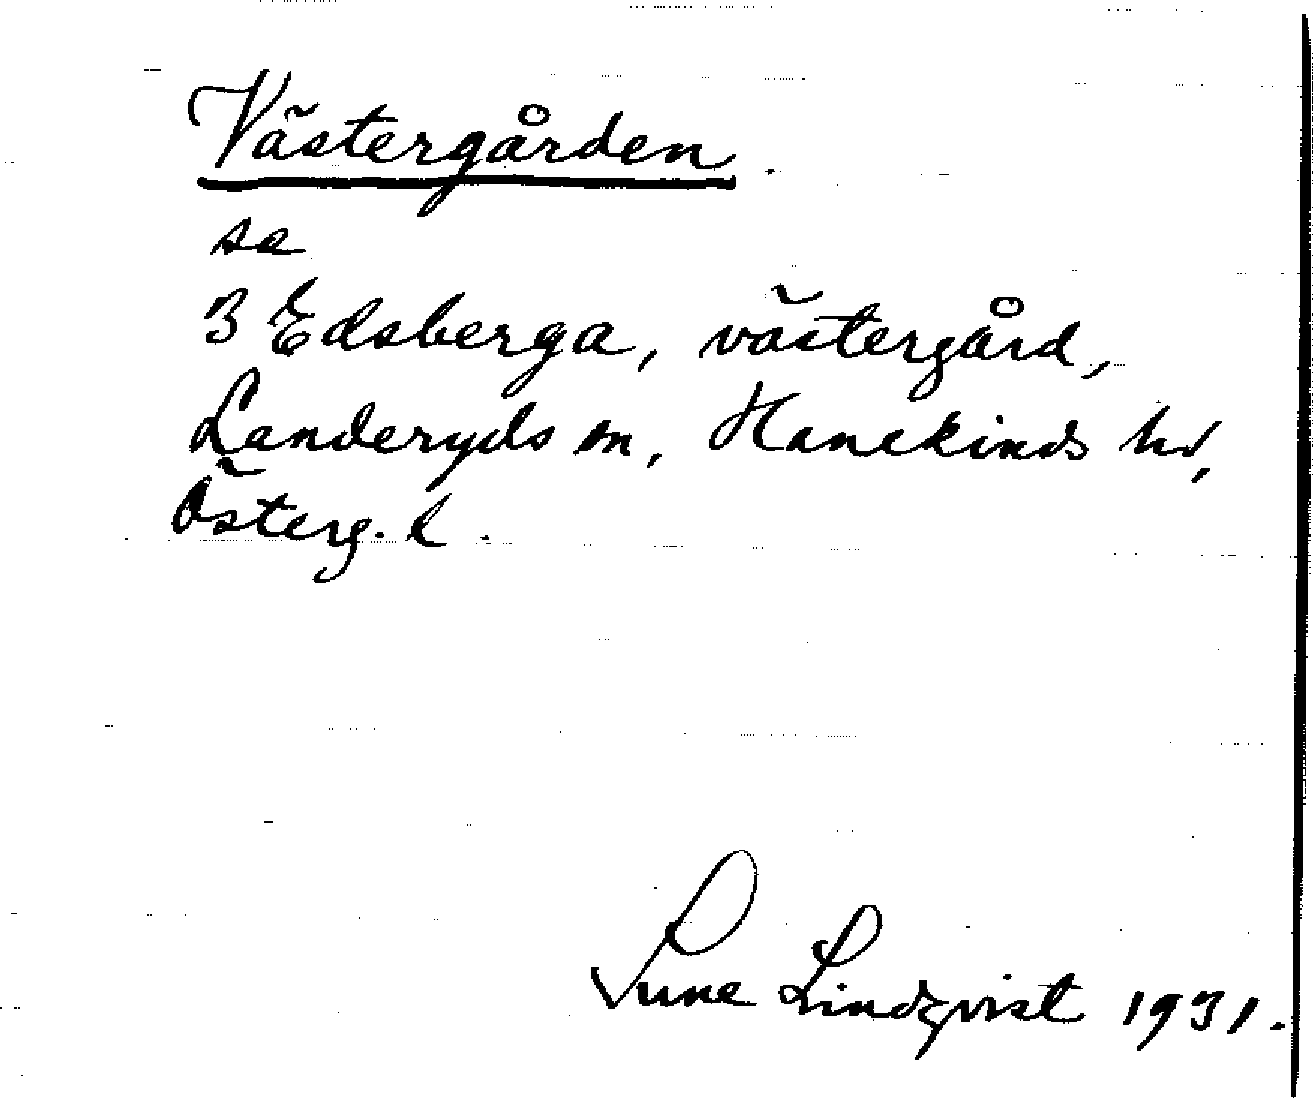 Västergården.
se
3 Edsberga, västergård,
Landeryds sn, Hanekinds hd,
Österg. l.
Sune Lindqvist 1931.